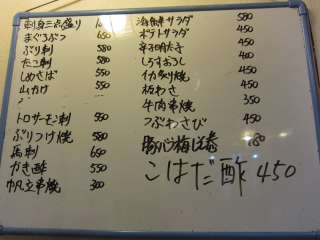 刺身三点盛り
まぐろぶつ 650
ぶり刺 580
たこ刺 580
しめさば 550
山かけ 550
トロサーモン刺 550
ぶりつけ焼 580
馬刺 650
かき酢 550
帆立串焼 300
海鮮サラダ 580
ポテトサラダ 400
辛子明太子 450
しらすおろし 400
イカ炙り焼 450
板わさ 400
牛肉串焼 350
つぶわさび 450
豚バラ梅しそ巻 180
こはだ酢 450